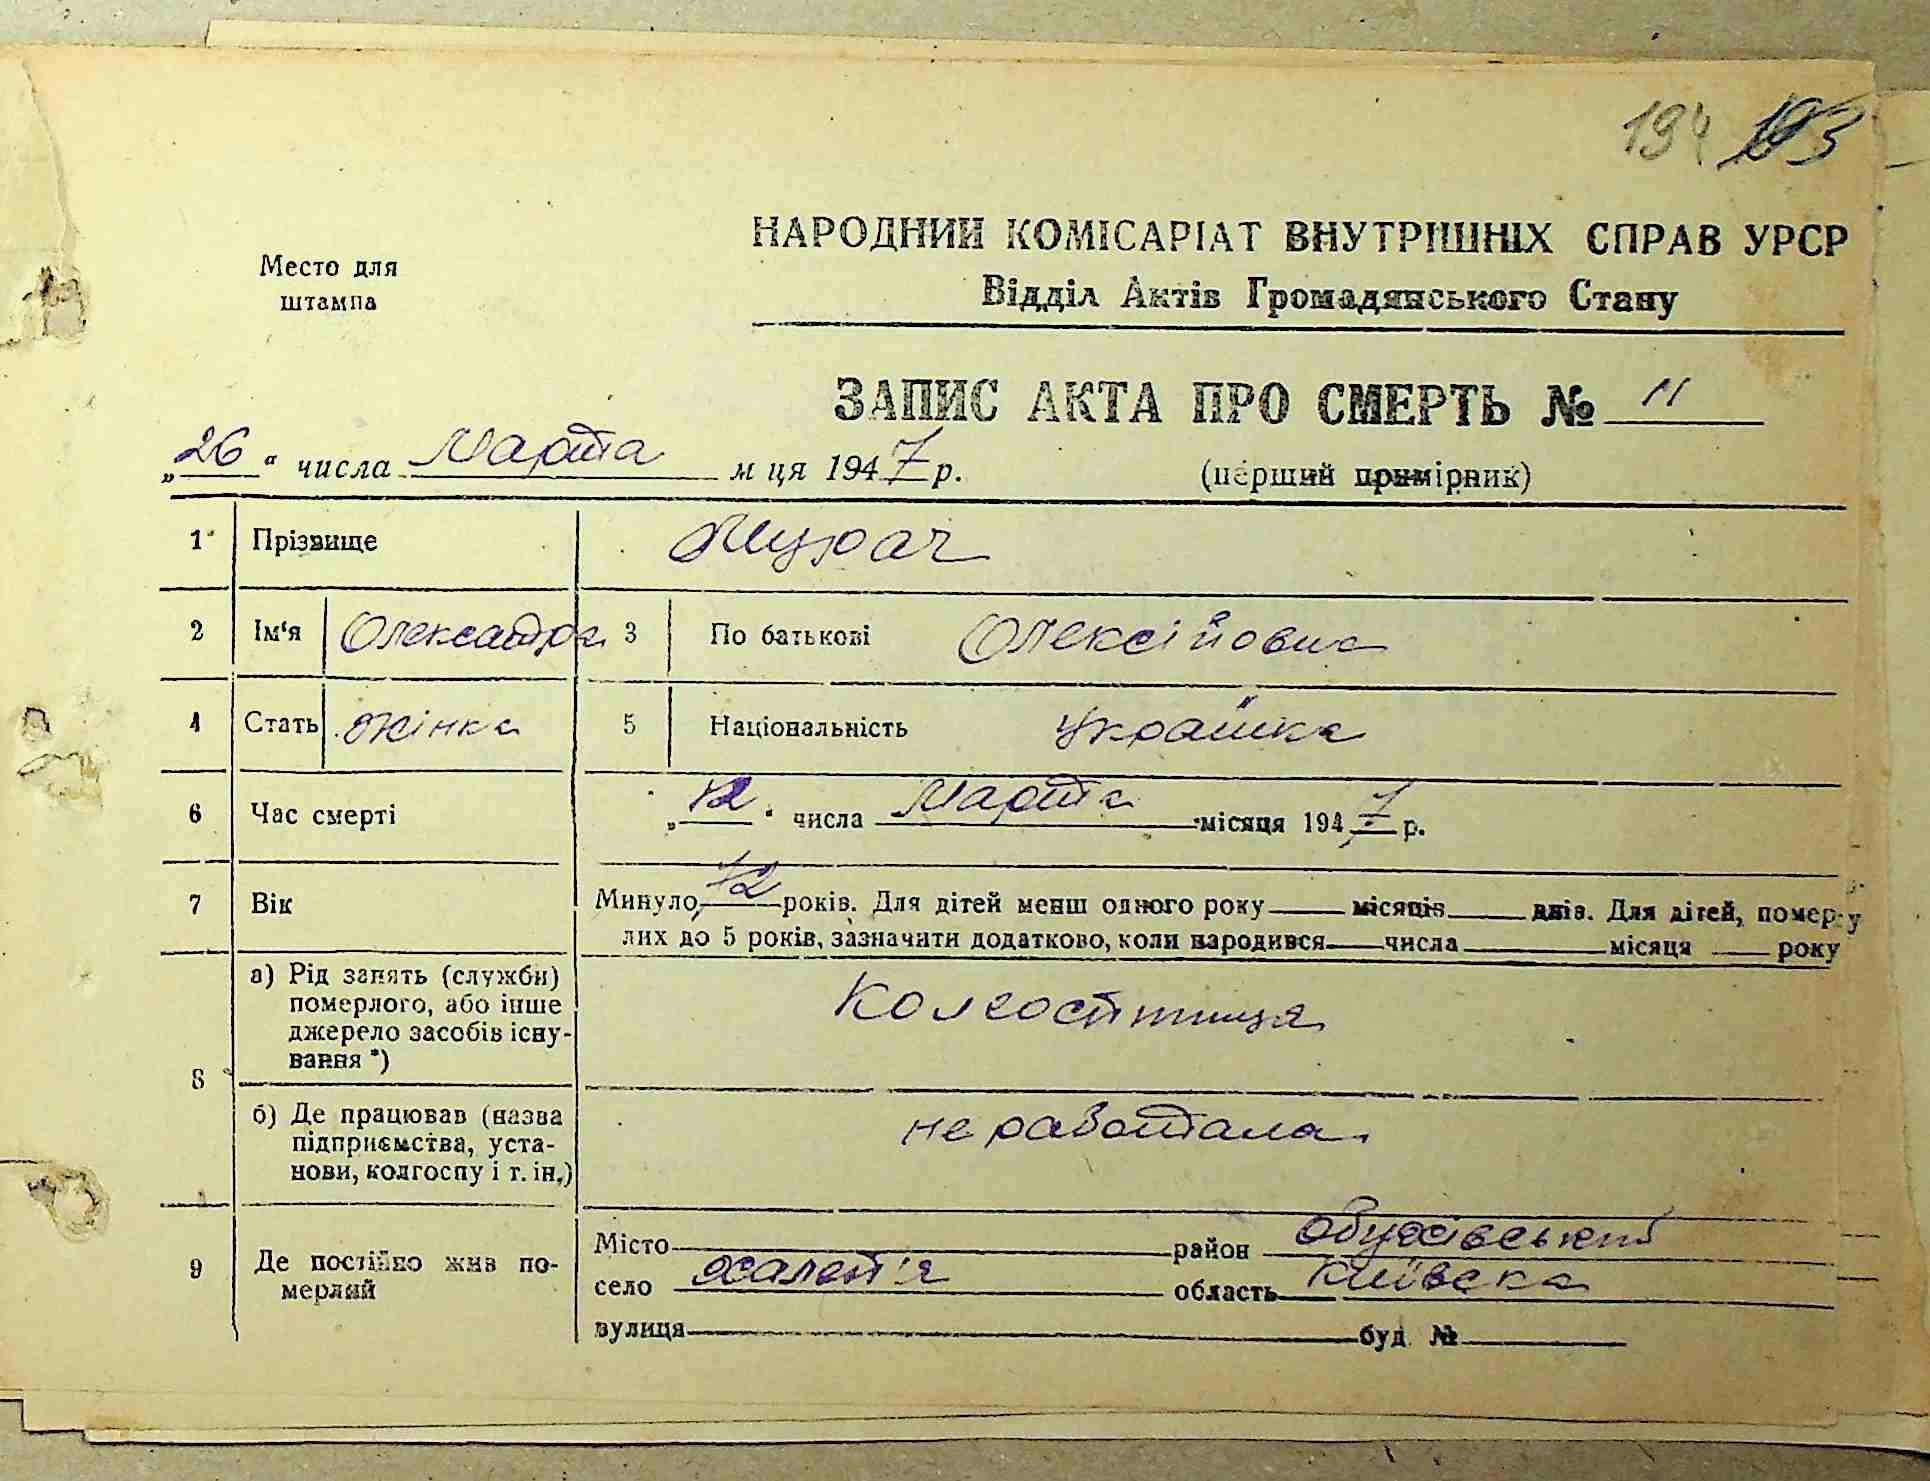 194 193
Место для
штампа
НАРОДНИЙ КОМІСАРІАТ ВНУТРІШНІХ СПРАВ УРСР
Відділ Актів Громадянського Стану
ЗАПИС АКТА ПРО СМЕРТЬ № 11
„26“ числа Марта м ця 1947 р. (перший примірник)
1 Прізвище
2 Ім‘я Олександра 3 По батькові Олексійовна
4 Стать жінка 5 Національність Українка
6 Час смерті „12“ числа Марта місяця 1947 р.
7 Вік Минуло 72 років. Для дітей менш одного року місяців днів. Для дітей, помер-
лих до 5 років, зазначити додатково, коли народився числа місяця року
8 а) Рід занять (служби)
померлого, або інше
джерело засобів існу-
вання *)
Колгоспниця
б) Де працював (назва
підприємства, уста-
нови, колгоспу і т. ін.)
не работала
9 Де постійно жив по-
мерлий
Місто район Обухівський
село Халеп'я область Київска
вулиця буд. №